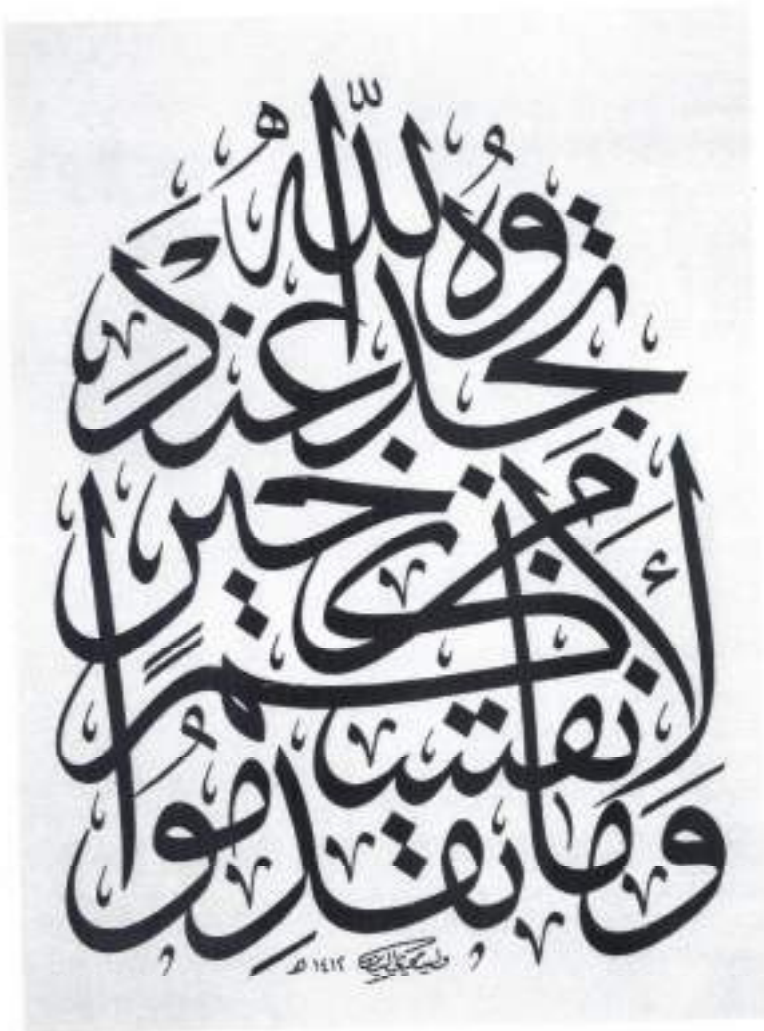 وَمَا تُقَدِّمُوا
لِأَنفُسِكُم
مِّنْ خَيْرٍ
تَجِدُوهُ عِندَ اللَّهِ
١٤١٢ هـ